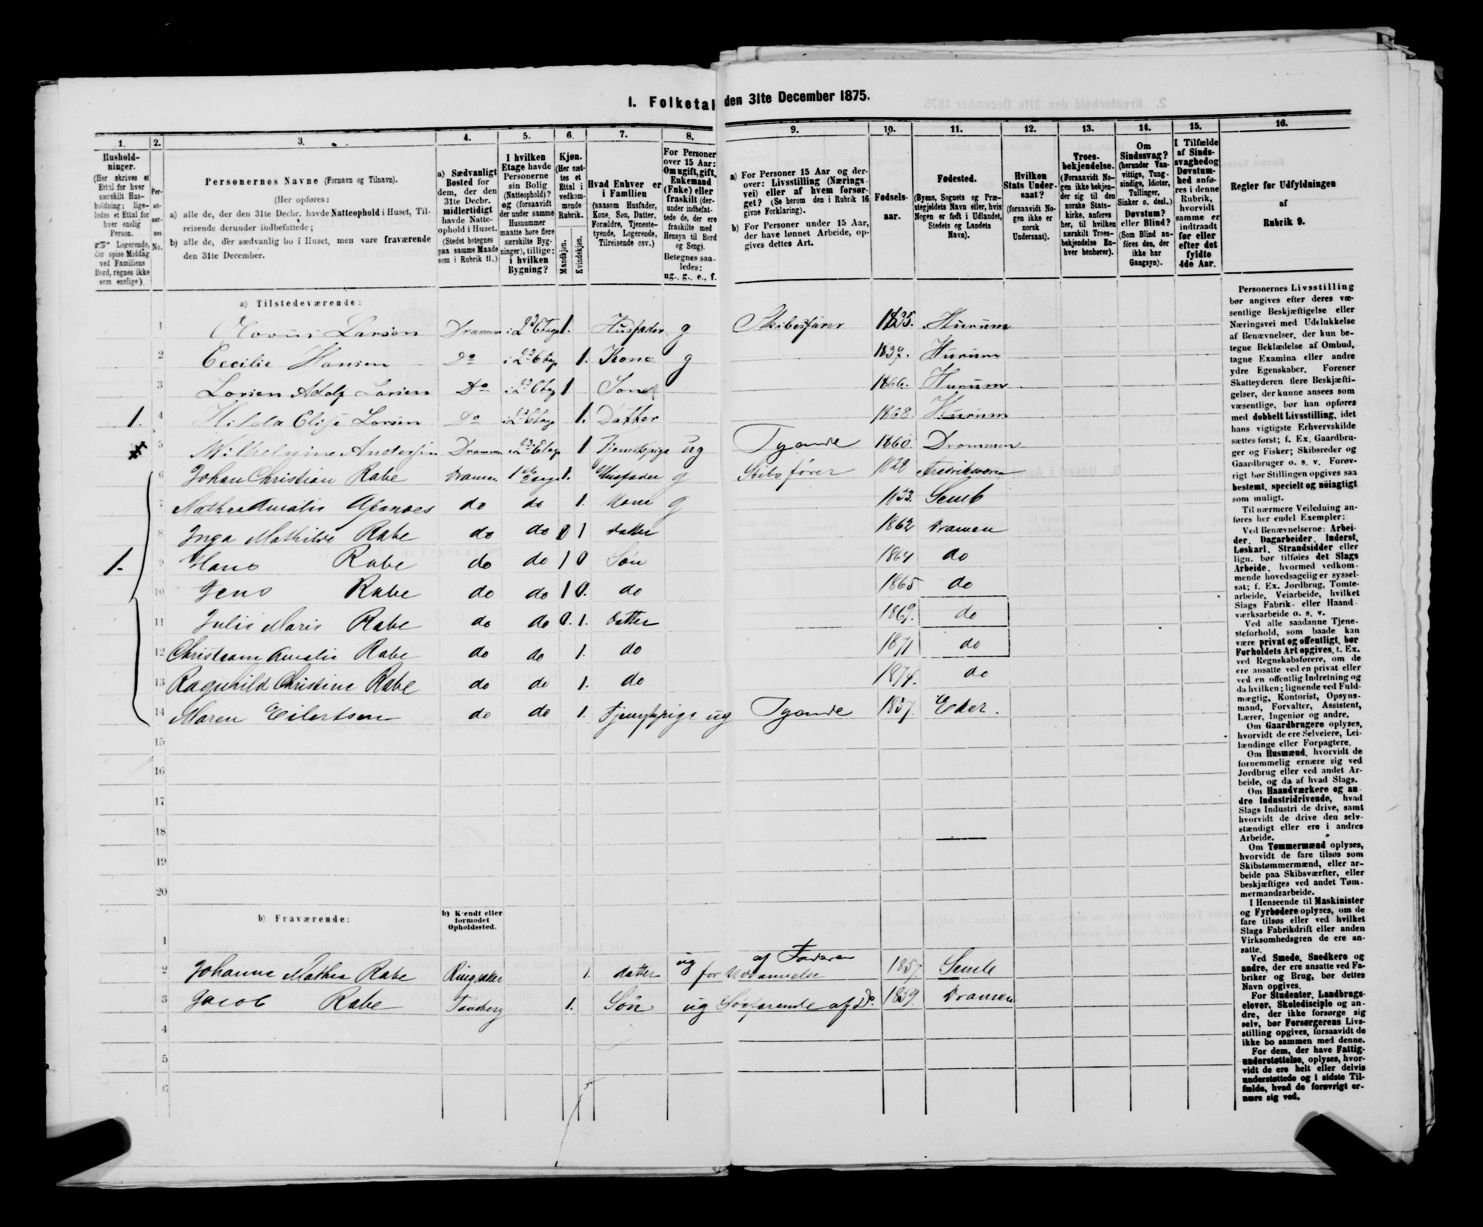 1. Folketal den 31te December 1875.
1.
Husholdninger.
(Her skrives et Ettal for hver særskilt Husholdning; ligeledes et Ettal for hver enslig Person.
☞ Logerende, der spise Middag ved Familiens Bord, regnes ikke som enslige).
2.
Personernes No.
3.
Personernes Navne (Fornavn og Tilnavn).
(Her opføres:
a) alle de, der den 31te Decbr. havde Natteophold i Huset, Tilreisende derunder indbefattede;
b) alle de, der sædvanlig bo i Huset, men vare fraværende den 31te December.
4.
a) Sædvanligt Bosted for dem, der den 31te Decbr. midlertidigt havde Natteophold i Huset.
(Stedet betegnes paa samme Maade som i Rubrik 11.)
5.
I hvilken Etage havde Personerne sin Bolig (Natteophold)? og (forsaavidt der under samme Husnummer maatte høre flere særskilte Bygninger), tillige: i hvilken Bygning?
6.
Kjøn.
(Her sættes et Ettal i vedkommende Rubrik.
Mandkjøn.
Kvindekjøn.
7.
Hvad Enhver er i Familien
(saasom Husfader, Kone, Søn, Datter, Forældre, Tjenestetyende, Logerende, Tilreisende osv.)
8.
For Personer over 15 Aar: Om ugift, gift, Enkemand (Enke) eller fraskilt (derunder indbefattede de, der ere fraskilte med Hensyn til Bord og Seng).
Betegnes saaledes: ug., g., e., f.
9.
a) For Personer 15 Aar og derover: Livsstilling (Næringsvei) eller af hvem forsørget? (Se herom den i Rubrik 16 givne Forklaring).
b) For Personer under 15 Aar, der have lønnet Arbeide, opgives dettes Art.
10.
Fødselsaar.
11.
Fødested.
(Byens, Sognets og Præstegjeldets Navn eller, hvis Nogen er født i Udlandet, Stedets og Landets Navn).
12.
Hvilken Stats Undersaat?
(forsaavidt Nogen ikke er norsk Undersaat).
13.
Troesbekjendelse.
(Forsaavidt Nogen ikke bekjender sig til den norske Statskirke, anføres her, til hvilken særskilt Troesbekjendelse Enhver henhører).
14.
Om Sindssvag?
(herunder Vanvittige, Tungsindige, Idioter, Tullinger, Sinker o. desl.)
Døvstum? eller Blind?
(Som Blind anføres den, der ikke har Gangsyn).
15.
I Tilfælde af Sindssvaghed og Døvstumhed anføres i denne Rubrik, hvorvidt samme er indtraadt før eller efter det fyldte 4de Aar.
16.
Regler for Udfyldningen
af
Rubrik 9.
a) Tilstedeværende:
1 Larsen Drammen i 2d Etage 1. Husfader g Skibsfører 1835. Hurum
2 Cecilie Hansen Do i 2d Etage 1. Kone g 1837. Hurum
3 Larsen Adolf Larsen Do i 2d Etage 1 Søn 1866. Hurum
1. 4 Hilda Elise Larsen Do i 2d Etage 1. Datter 1868. Hurum
5 Wilhelmine Andersen Drammen i 2d Etage 1 Tjenestepige ug Tyende 1860 Drammen
6 Johan Christian Rabe Dramen 1ste Etage 1. Husfader g Skibsfører 1828 Fredriksværn
7 Mathea Amalie do do 1. Kone g 1833 Semb
8 Inga Mathilde Rabe do do 0 1 Datter 1862 Dramen
1. 9 Hans Rabe do do 1 0 Søn 1864 do
10 Jens Rabe do do 1 0. do 1865 do
11 Julie Marie Rabe do do 0. 1. Datter 1869. do
12 Christiane Amalie Rabe do do 1. do 1871 do
13 Ragnhild Christine Rabe do do 1. do 1874. do
14 Maren Eilertsen do do 1. Tjenestepige ug Tyende 1857 Eker.
15
16
17
18
19
20
b) Fraværende:
b) Kjendt eller formodet Opholdssted.
1
2 Johanne Mathea Rabe 1. datter ug af Faderen for 1857 Semb
3 Jacob Rabe Tønsberg 1. Søn ug Søfarende 1859. Dramen
4
5
6
Personernes Livsstilling bør angives efter deres væsentlige Beskjæftigelse eller Næringsvei med Udelukkelse af Benævnelser, der kun betegne Beklædelse af Ombud, tagne Examina eller andre ydre Egenskaber. Forener Skatteyderen flere Beskjæftigelser, der kunne ansees som væsentlige, bør han opføres med dobbelt Livsstilling, idet hans vigtigste Erhvervskilde sættes først; f. Ex. Gaardbruger og Fisker; Skibsreder og Gaardbruger o. s. v. Forøvrigt bør Stillingen opgives saa bestemt, specielt og nøiagtigt som muligt.
Til nærmere Veiledning anføres her endel Exempler:
Ved Benævnelserne: Arbeider, Dagarbeider, Inderst, Løskarl, Strandsidder eller lign. bør tilføies det Slags Arbeide, hvormed vedkommende hovedsagelig er sysselsat; f. Ex. Jordbrug, Tomtearbeide, Veiarbeide, hvilket Slags Fabrik- eller Haandværksarbeide o. s. v.
Ved alle saadanne Tjenesteforhold, som baade kan være privat og offentligt, bør Forholdets Art opgives, t. Ex. ved Regnskabsførere, om de ere ansatte ved en privat eller ved en offentlig Indretning og da hvilken; lignende ved Fuldmægtig, Kontorist, Opsynsmand, Forvalter, Assistent, Lærer, Ingeniør og andre.
Om Gaardbrugere oplyses, hvorvidt de ere Selveiere, Leilændinge eller Forpagtere.
Om Husmænd, hvorvidt de fornemmelig ernære sig ved Jordbrug eller ved andet Arbeide, og da af hvad Slags.
Om Haandværkere og andre Industridrivende, hvad Slags Industri de drive, samt hvorvidt de drive den selvstændigt eller ere i andres Arbeide.
Om Tømmermænd oplyses, hvorvidt de fare tilsøs som Skibstømmermænd, eller arbeide paa Skibsværfter, eller beskjæftiges ved andet Tømmermandsarbeide.
I Henseende til Maskinister og Fyrbødere oplyses, om de fare tilsøs eller ved hvilket Slags Fabrikdrift eller anden Virksomhedsgren de ere ansatte.
Ved Smede, Snedkere og andre, der ere ansatte ved Fabriker og Brug, bør dettes Navn opgives.
For Studenter, Landbrugselever, Skoledisciple og andre, der ikke forsørge sig selv, bør Forsørgerens Livsstilling opgives, forsaavidt de ikke bo sammen med denne.
For dem, der have Fattigunderstøttelse, oplyses, hvorvidt de ere helt eller delvis understøttede og i sidste Tilfælde, hvad de forøvrigt ernære sig ved.